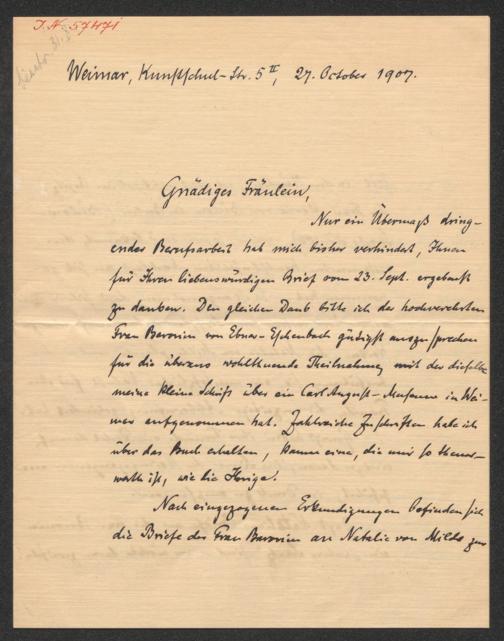 I.N. 57471
Weimar, Kunstschul-Str. 5 II, 27. October 1907.
Gnädiges Fräulein,
Nur ein Übermaß dring-
ender Berufsarbeit hat mich bisher verhindert, Ihnen
für Ihren liebenswürdigen Brief vom 23. Sept. ergebenst
zu danken. Den gleichen Dank bitte ich der hochverehrten
Frau Baronin von Ebner-Eschenbach gütigst auszusprechen
für die überaus wohlthuende Theilnahme, mit der dieselbe
meine kleine Schrift über ein Carl August-Museum in Wei-
mar aufgenommen hat. Zahlreiche Zuschriften habe ich
über das Buch erhalten, kaum eine, die mir so theuer-
werth ist, wie die Ihrige.
Nach eingezogenen Erkundigungen befinden sich
die Briefe der Frau Baronin an Natalie von Milde zur